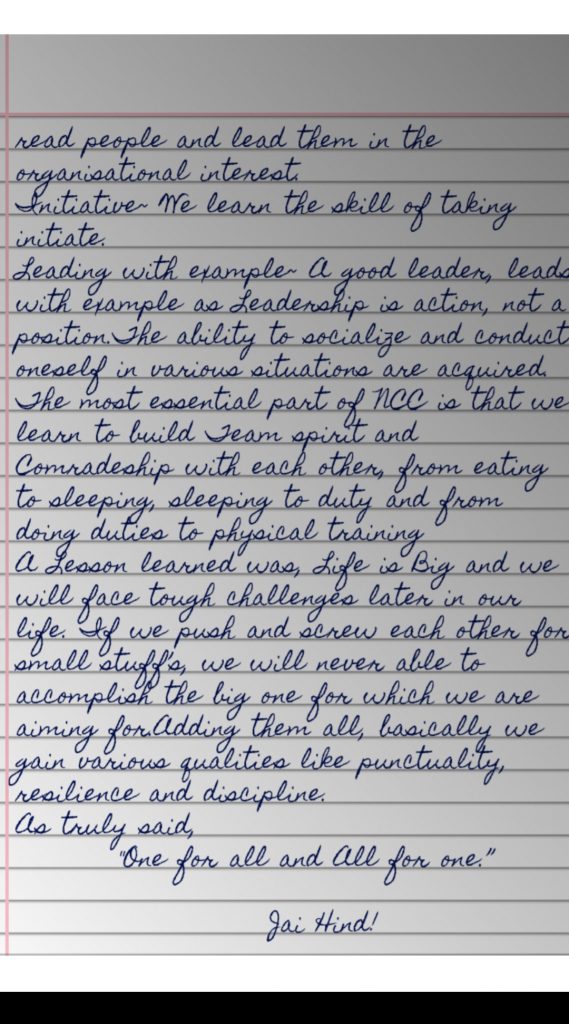 read people and lead them in the
organisational interest.
Initiative~ We learn the skill of taking
initiate.
Leading with example~ A good leader, leads
with example as Leadership is action, not a
position.The ability to socialize and conduct
oneself in various situations are acquired.
The most essential part of NCC is that we
learn to build Team spirit and
Comradeship with each other, from eating
to sleeping, sleeping to duty and from
doing duties to physical training
A Lesson learned was, Life is Big and we
will face tough challenges later in our
life. If we push and screw each other for
small stuff's, we will never able to
accomplish the big one for which we are
aiming for.Adding them all, basically we
gain various qualities like punctuality,
resilience and discipline.
As truly said,
"One for all and All for one."
Jai Hind!